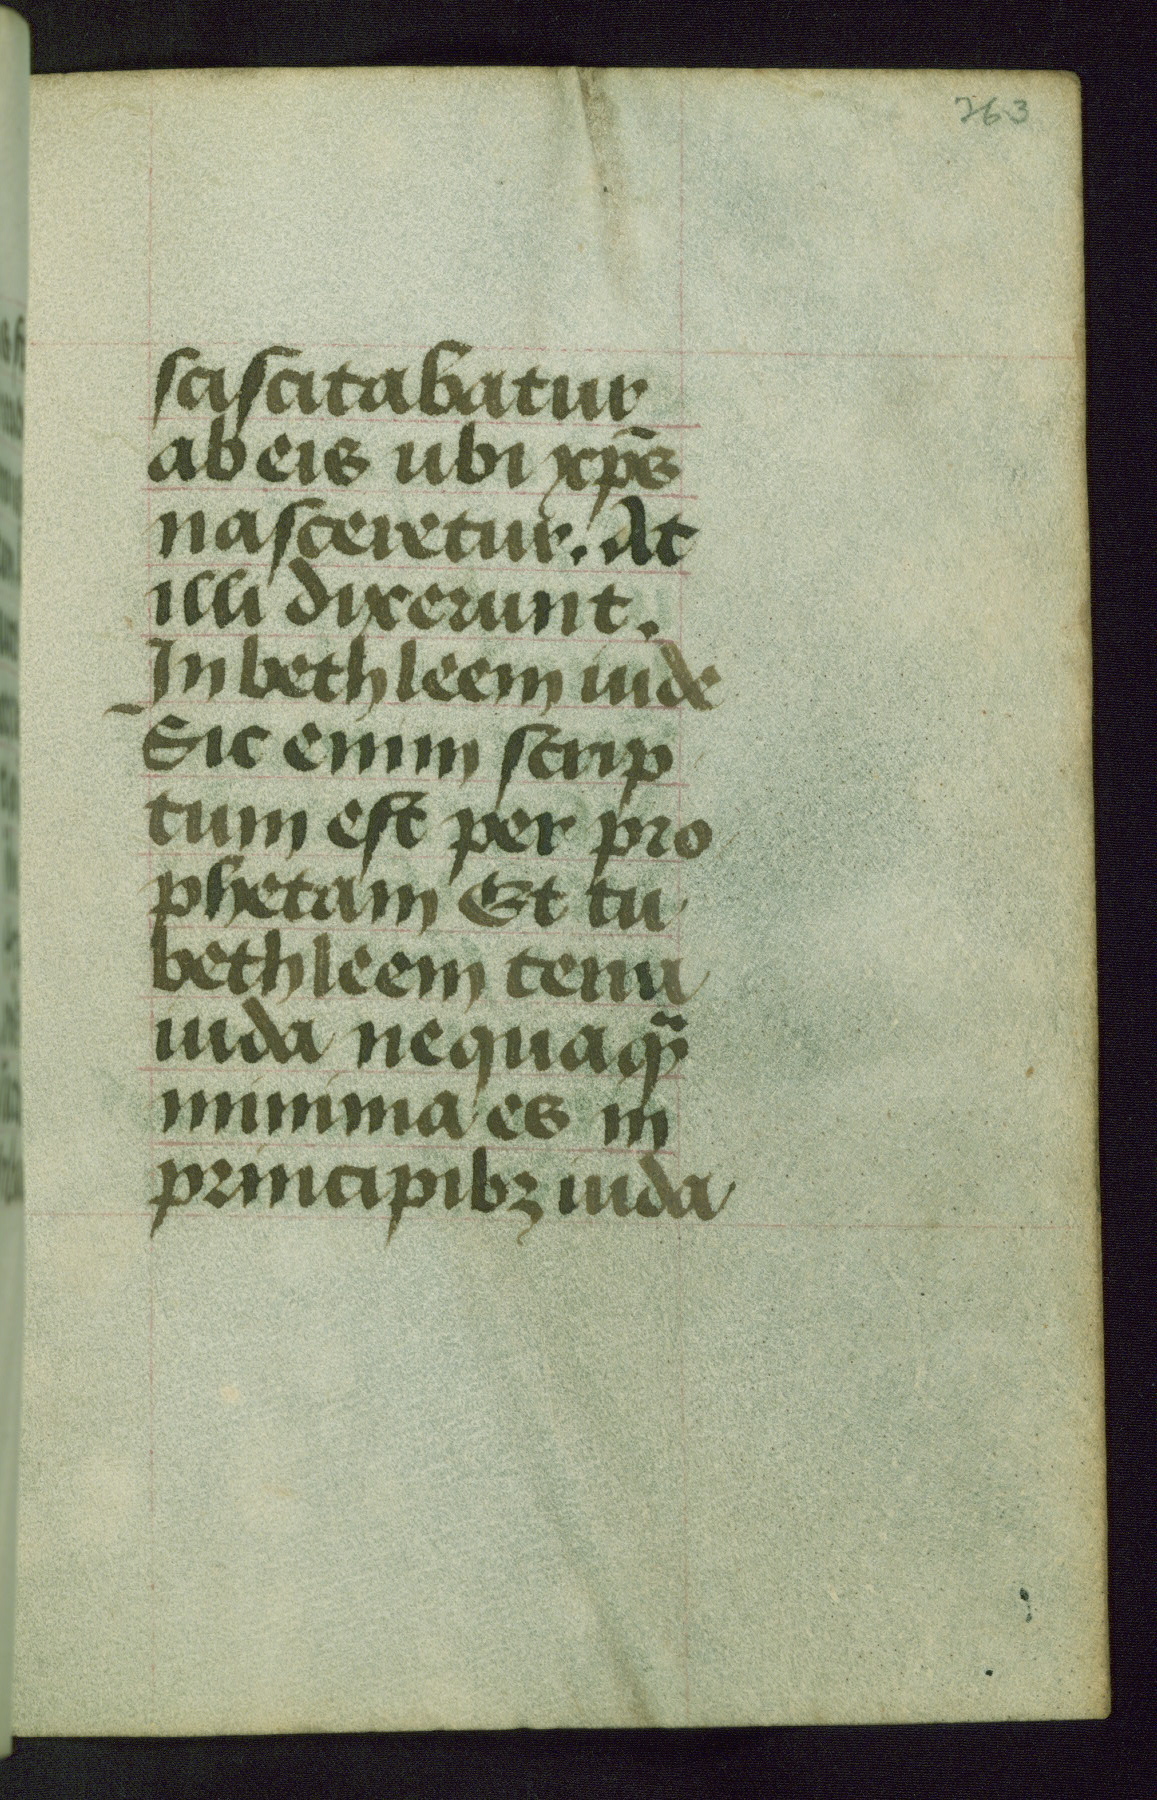 263
sciscitabatur
ab eis ubi xp̄s
nasceretur. At
illi dixerunt.
In bethleem iude
Sic enim scrip
tum est per pro
phetam Et tu
bethleem terra
iuda nequaq̃
minima es in
principibꝫ iuda